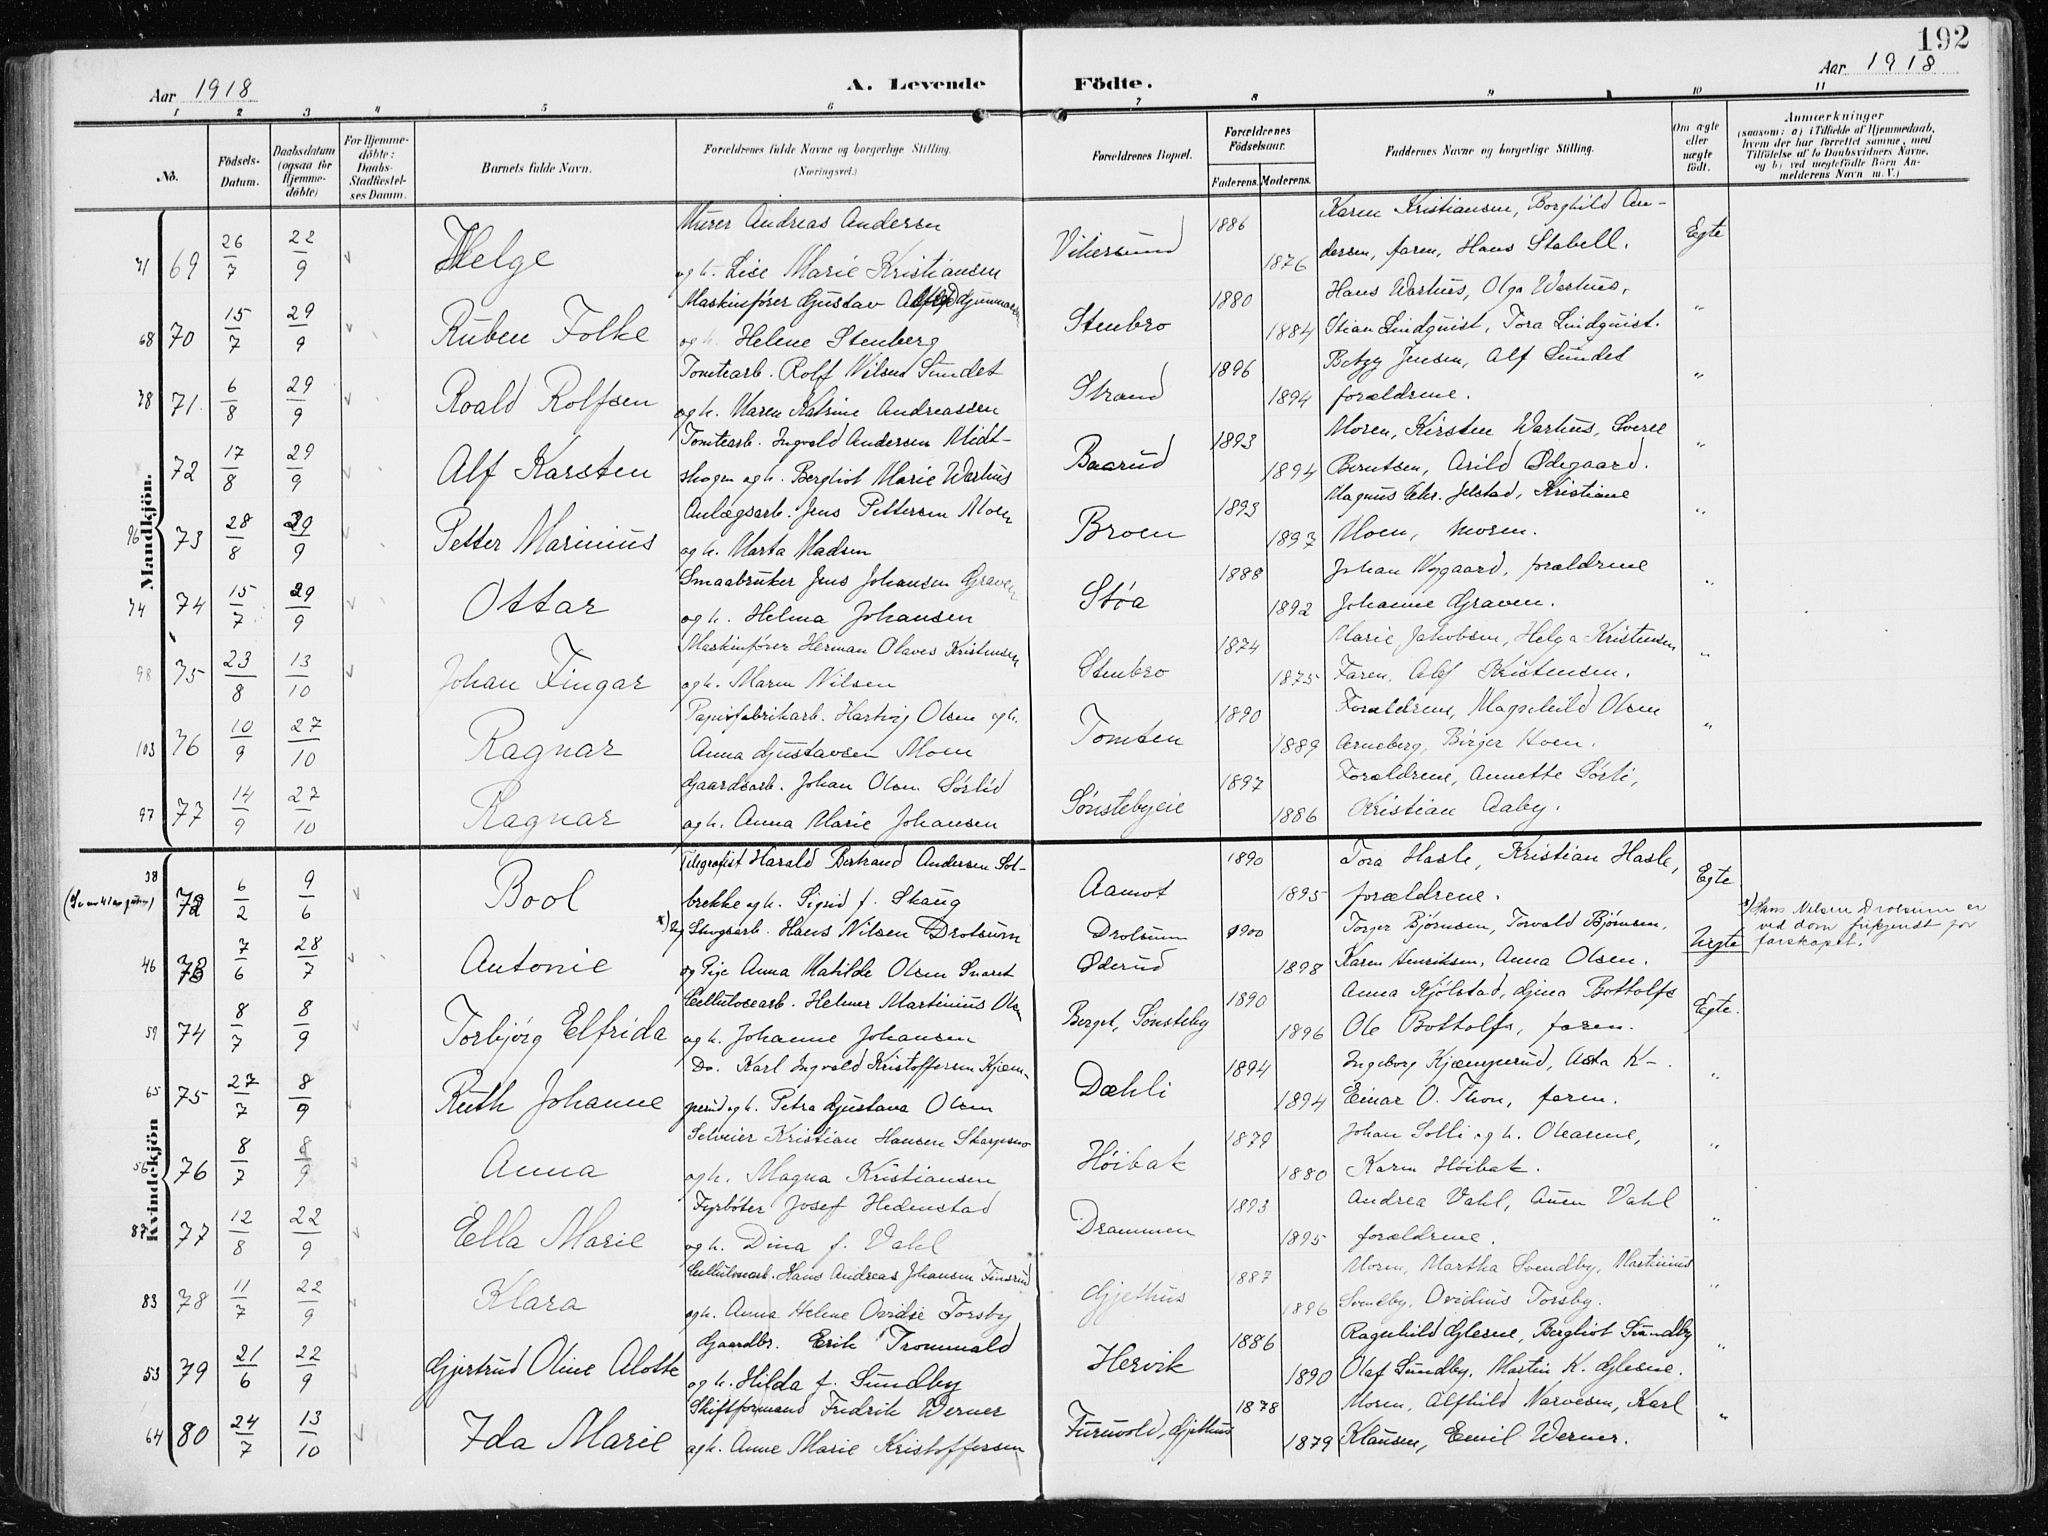 192
Aar 1918
A. Levende Födte.
Aar 1918
1 2 3 4 5 6 7 8 9 10 11
No.
Födsels-Datum.
Daabsdatum (ogsaa for Hjemmedöbte)
For Hjemmedöbte: Daabs-Stadfæstelses Datum.
Barnets fulde Navn.
Forældrenes fulde Navne og borgerlige Stilling. (Næringsvei.)
Forældrenes Bopæl.
Forældrenes Födselsaar.
Faderens. Moderens.
Faddernes Navne og borgerlige Stilling.
Om ægte eller uægte födt.
Anmærkninger
(saasom: a) i Tilfælde af Hjemmedaab, hvem der har forrettet samme, med Tilföielse af to Daabsvidners Navne, og b) ved uægtefödte Börn Anmelderens Navn m. V.)
Mandkjön.
71 69 26/7 22/9 Helge Murer Andreas Andersen Vikersund 1886 Karen Kristiansen, Borghild An- Egte
og h. Lise Marie Kristiansen 1876 dersen, faren, Hans Stabell.
68 70 15/7 29/9 Ruben Folke Maskinfører Gustav Gunnarsen Stenbro 1880 Hans Warhus, Olga Warhus, "
og h. Helene Stenberg 1884 Stian Lindquist, Tora Lindquist.
78 71. 6/8 29/9 Roald Rolfsen Tomtearb. Rolf Nilsen Sundet Strand 1896 Betzy Jensen, Alf Sundet "
og h. Maren Katrine Andreassen 1894 forældrene.
72 17/8 29/9 Alf Karsten Tomtearb. Ingvald Andersen Midt- Baarud 1893 Moren, Kirsten Warhus, Sverre "
skogen og h. Bergliot Marie Warhus 1894 Berntsen, Arild Ødegaard.
96 73 28/8 29/9 Petter Marinius Anlægsarb. Jens Pettersen Moen Broen 1893 Magnus Chr. Jelstad, Kristiane "
og h. Marta Madsen 1897 Moen, moren.
74 74 15/7 29/9 Ottar Smaabruker Jens Johansen Graven Støa 1888 Johan Nygaard, forældrene "
og h. Helma Johansen 1892 Johanne Graven.
98 75 23/8 13/10 Johan Fingar Maskinfører Herman Olaves Kristensen Stenbro 1874 Marie Jakobsen, Helga Kristensen "
og h. Maren Nilsen 1875 Faren, Alf Kristensen.
103 76 10/9 27/10 Ragnar Papirfabrikarb. Hartvig Olsen og h. Tomten 1890 Forældrene, Magnhild Olsen "
Anna Gustavsen Moen 1889 Arneberg, Birger Hoen.
97 77 14/9 27/10 Ragnar Gaardsarb. Johan Olsen Sørlid Sønstebyeie 1897 Forældrene, Annette Sørli,
og h. Anna Marie Johansen 1886 Kristian Aaby.
Kvindekjön
38 72 6/2 9/6 Bool Telegrafist Harald Bertrand Andersen Sol- Aamot 1890 Tora Hasle, Kristian Hasle, Egte
brekke og h. Sigrid f. Skaug 1895 forældrene.
46 73 7/6 28/7 Antonie x) Ug Skogsarb. Hans Nilsen Drolsum Drolsum 1900 Torger Bjørnsen, Torvald Bjørnsen, Uegte x) Hans Nilsen Drolsum er
ved dom frikjendt for
farskapet.
og Pige Anna Matilde Olsen Snaret Øderud 1898 Karen Henriksen, Anna Olsen.
59 74 8/7 8/9 Torbjørg Elfrida Cellulosearb. Helmer Martinius Olsen Berget, Sønsteby 1890 Anna Kjølstad, Gina Bottolfs Egte.
og h. Johanne Johansen 1896 Ole Bottolfs, faren.
65 75 27/7 8/9 Ruth Johanne Do. Karl Ingvald Kristoffersen Kjæm- Dæhli 1894 Ingeborg Kjæmperud, Asta K-. "
perud og h. Petra Gustava Olsen 1894 Einar O. Thon, faren.
56 76 8/7 8/9 Anna Selveier Kristian Hansen Skarpsno Høibak 1879 Johan Solli og h. Olearine, "
og h. Magna Kristiansen 1880 Karen Høibak.
87 77 12/8 22/9 Ella Marie Fyrbøter Josef Hedenstad Drammen 1893 Andrea Vahl, Auen Vahl "
og h. Dina f. Vahl 1895 forældrene.
83 78 11/7 22/9 Klara Cellulosearb. Hans Andreas Johansen Finsrud Gjethus 1887 Moren, Martha Svendby, Martinius "
og h. Anna Helene Ovidie Torsby 1896 Svendby, Ovidius Torsby.
53 79 21/6 22/9 Gjertrud Oline Alotte Gaardbr. Erik Trommald Hervik 1886 Ragnhild Glesne, Bergliot Sundby "
og h. Hilda f. Sundby 1890 Olaf Sundby, Martin K. Glesne.
64 80 24/7 13/10 Ida Marie Skiftformand Fredrik Werner Furuvold, Gjethus 1878 Moren, Alfhild Narvesen, Karl "
og h. Anne Marie Kristoffersen 1879 Klausen, Emil Werner.